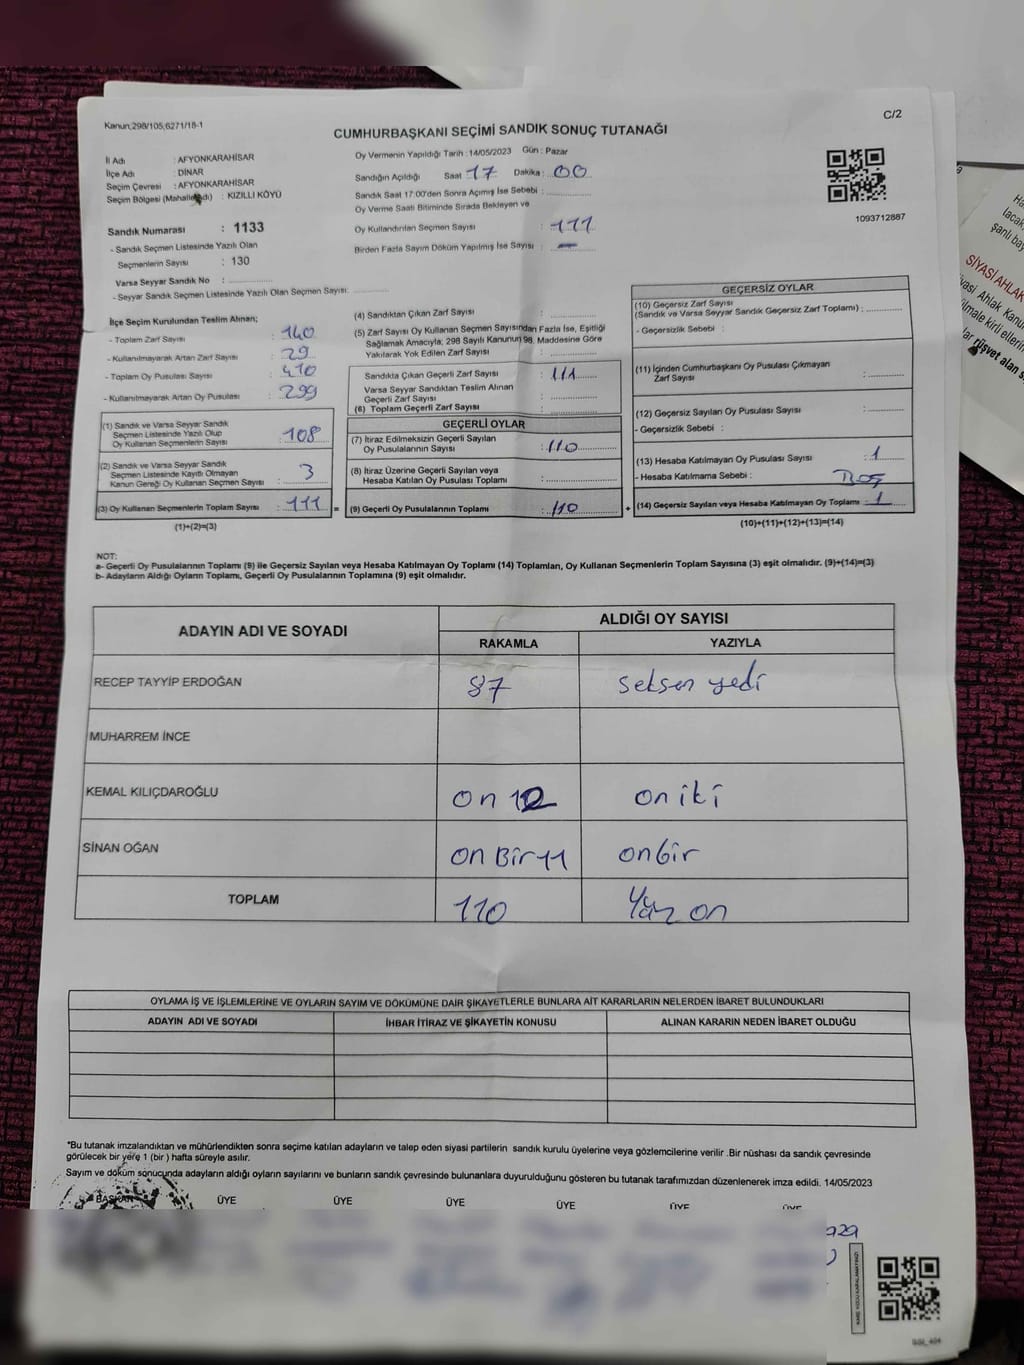 Kanun;298/105;6271/18-1
C/2
CUMHURBAŞKANI SEÇİMİ SANDIK SONUÇ TUTANAĞI
İl Adı : AFYONKARAHİSAR
İlçe Adı : DİNAR
Seçim Çevresi : AFYONKARAHİSAR
Seçim Bölgesi (Mahalle Adı) : KIZILLI KÖYÜ
Sandık Numarası : 1133
- Sandık Seçmen Listesinde Yazılı Olan
Seçmenlerin Sayısı : 130
Varsa Seyyar Sandık No :
- Seyyar Sandık Seçmen Listesinde Yazılı Olan Seçmen Sayısı:
Oy Vermenin Yapıldığı Tarih : 14/05/2023 Gün : Pazar
Sandığın Açıldığı Saat 17 Dakika : 00
Sandık Saat 17:00'den Sonra Açımış İse Sebebi :
Oy Verme Saati Bitiminde Sırada Bekleyen ve
Oy Kullandırılan Seçmen Sayısı : 111
Birden Fazla Sayım Döküm Yapılmış İse Sayısı : -
1093712887
İlçe Seçim Kurulundan Teslim Alınan;
- Toplam Zarf Sayısı : 140
- Kullanılmayarak Artan Zarf Sayısı : 29
- Toplam Oy Pusulası Sayısı : 410
- Kullanılmayarak Artan Oy Pusulası : 299
(1) Sandık ve Varsa Seyyar Sandık
Seçmen Listesinde Yazılı Olup
Oy Kullanan Seçmenlerin Sayısı : 108
(2) Sandık ve Varsa Seyyar Sandık
Seçmen Listesinde Kayıtlı Olmayan
Kanun Gereği Oy Kullanan Seçmen Sayısı : 3
(3) Oy Kullanan Seçmenlerin Toplam Sayısı : 111 =
(1)+(2)=(3)
(4) Sandıktan Çıkan Zarf Sayısı :
(5) Zarf Sayısı Oy Kullanan Seçmen Sayısından Fazla İse, Eşitliği
Sağlamak Amacıyla; 298 Sayılı Kanunun 98. Maddesine Göre
Yakılarak Yok Edilen Zarf Sayısı :
Sandıkta Çıkan Geçerli Zarf Sayısı : 111
Varsa Seyyar Sandıktan Teslim Alınan
Geçerli Zarf Sayısı :
(6) Toplam Geçerli Zarf Sayısı :
GEÇERLİ OYLAR
(7) İtiraz Edilmeksizin Geçerli Sayılan
Oy Pusulalarının Sayısı : 110
(8) İtiraz Üzerine Geçerli Sayılan veya
Hesaba Katılan Oy Pusulası Toplamı :
(9) Geçerli Oy Pusulalarının Toplamı : 110 +
GEÇERSİZ OYLAR
(10) Geçersiz Zarf Sayısı
(Sandık ve Varsa Seyyar Sandık Geçersiz Zarf Toplamı) :
- Geçersizlik Sebebi :
(11) İçinden Cumhurbaşkanı Oy Pusulası Çıkmayan
Zarf Sayısı :
(12) Geçersiz Sayılan Oy Pusulası Sayısı :
- Geçersizlik Sebebi :
(13) Hesaba Katılmayan Oy Pusulası Sayısı : 1
- Hesaba Katılmama Sebebi : Boş
(14) Geçersiz Sayılan veya Hesaba Katılmayan Oy Toplamı : 1
(10)+(11)+(12)+(13)=(14)
NOT:
a- Geçerli Oy Pusulalarının Toplamı (9) ile Geçersiz Sayılan veya Hesaba Katılmayan Oy Toplamı (14) Toplamları, Oy Kullanan Seçmenlerin Toplam Sayısına (3) eşit olmalıdır. (9)+(14)=(3)
b- Adayların Aldığı Oyların Toplamı, Geçerli Oy Pusulalarının Toplamına (9) eşit olmalıdır.
ADAYIN ADI VE SOYADI
ALDIĞI OY SAYISI
RAKAMLA YAZIYLA
RECEP TAYYİP ERDOĞAN 87 seksen yedi
MUHARREM İNCE
KEMAL KILIÇDAROĞLU on 12 on iki
SİNAN OĞAN on Bir 11 onbir
TOPLAM 110 Yüz on
OYLAMA İŞ VE İŞLEMLERİNE VE OYLARIN SAYIM VE DÖKÜMÜNE DAİR ŞİKAYETLERLE BUNLARA AİT KARARLARIN NELERDEN İBARET BULUNDUKLARI
ADAYIN ADI VE SOYADI İHBAR İTİRAZ VE ŞİKAYETİN KONUSU ALINAN KARARIN NEDEN İBARET OLDUĞU
*Bu tutanak imzalandıktan ve mühürlendikten sonra seçime katılan adayların ve talep eden siyasi partilerin sandık kurulu üyelerine veya gözlemcilerine verilir .Bir nüshası da sandık çevresinde
görülecek bir yere 1 (bir ) hafta süreyle asılır.
Sayım ve döküm sonucunda adayların aldığı oyların sayılarını ve bunların sandık çevresinde bulunanlara duyurulduğunu gösteren bu tutanak tarafımızdan düzenlenerek imza edildi. 14/05/2023
BAŞKAN ÜYE ÜYE ÜYE ÜYE ÜYE ÜYE
SİYASİ AHLAK